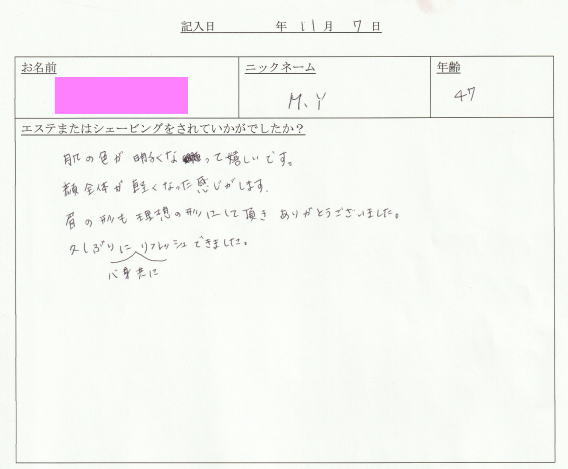 記入日 年 11月 7日
お名前 ニックネーム 年齢
M、Y 47
エステまたはシェービングをされていかがでしたか？
肌の色が明るくなって嬉しいです。
顔全体が軽くなった感じがします。
眉の形も理想の形にして頂きありがとうございました。
久しぶりにリフレッシュできました。
心身共に